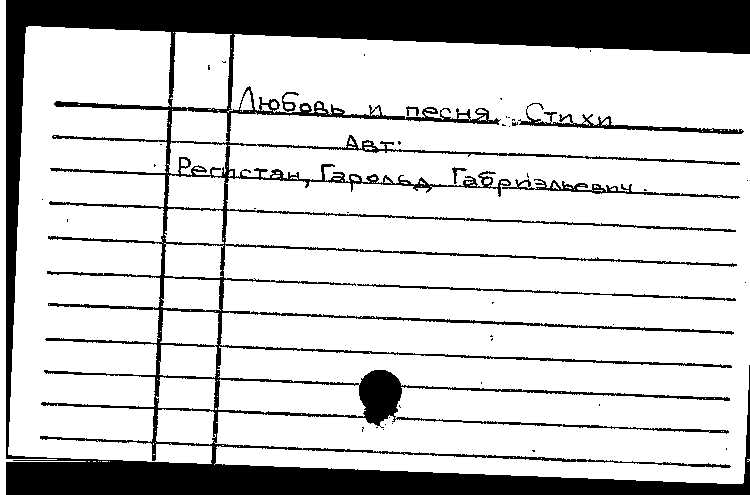 Любовь и песня. Стихи
Авт:
Регистан, Гарольд Габриэльевич.